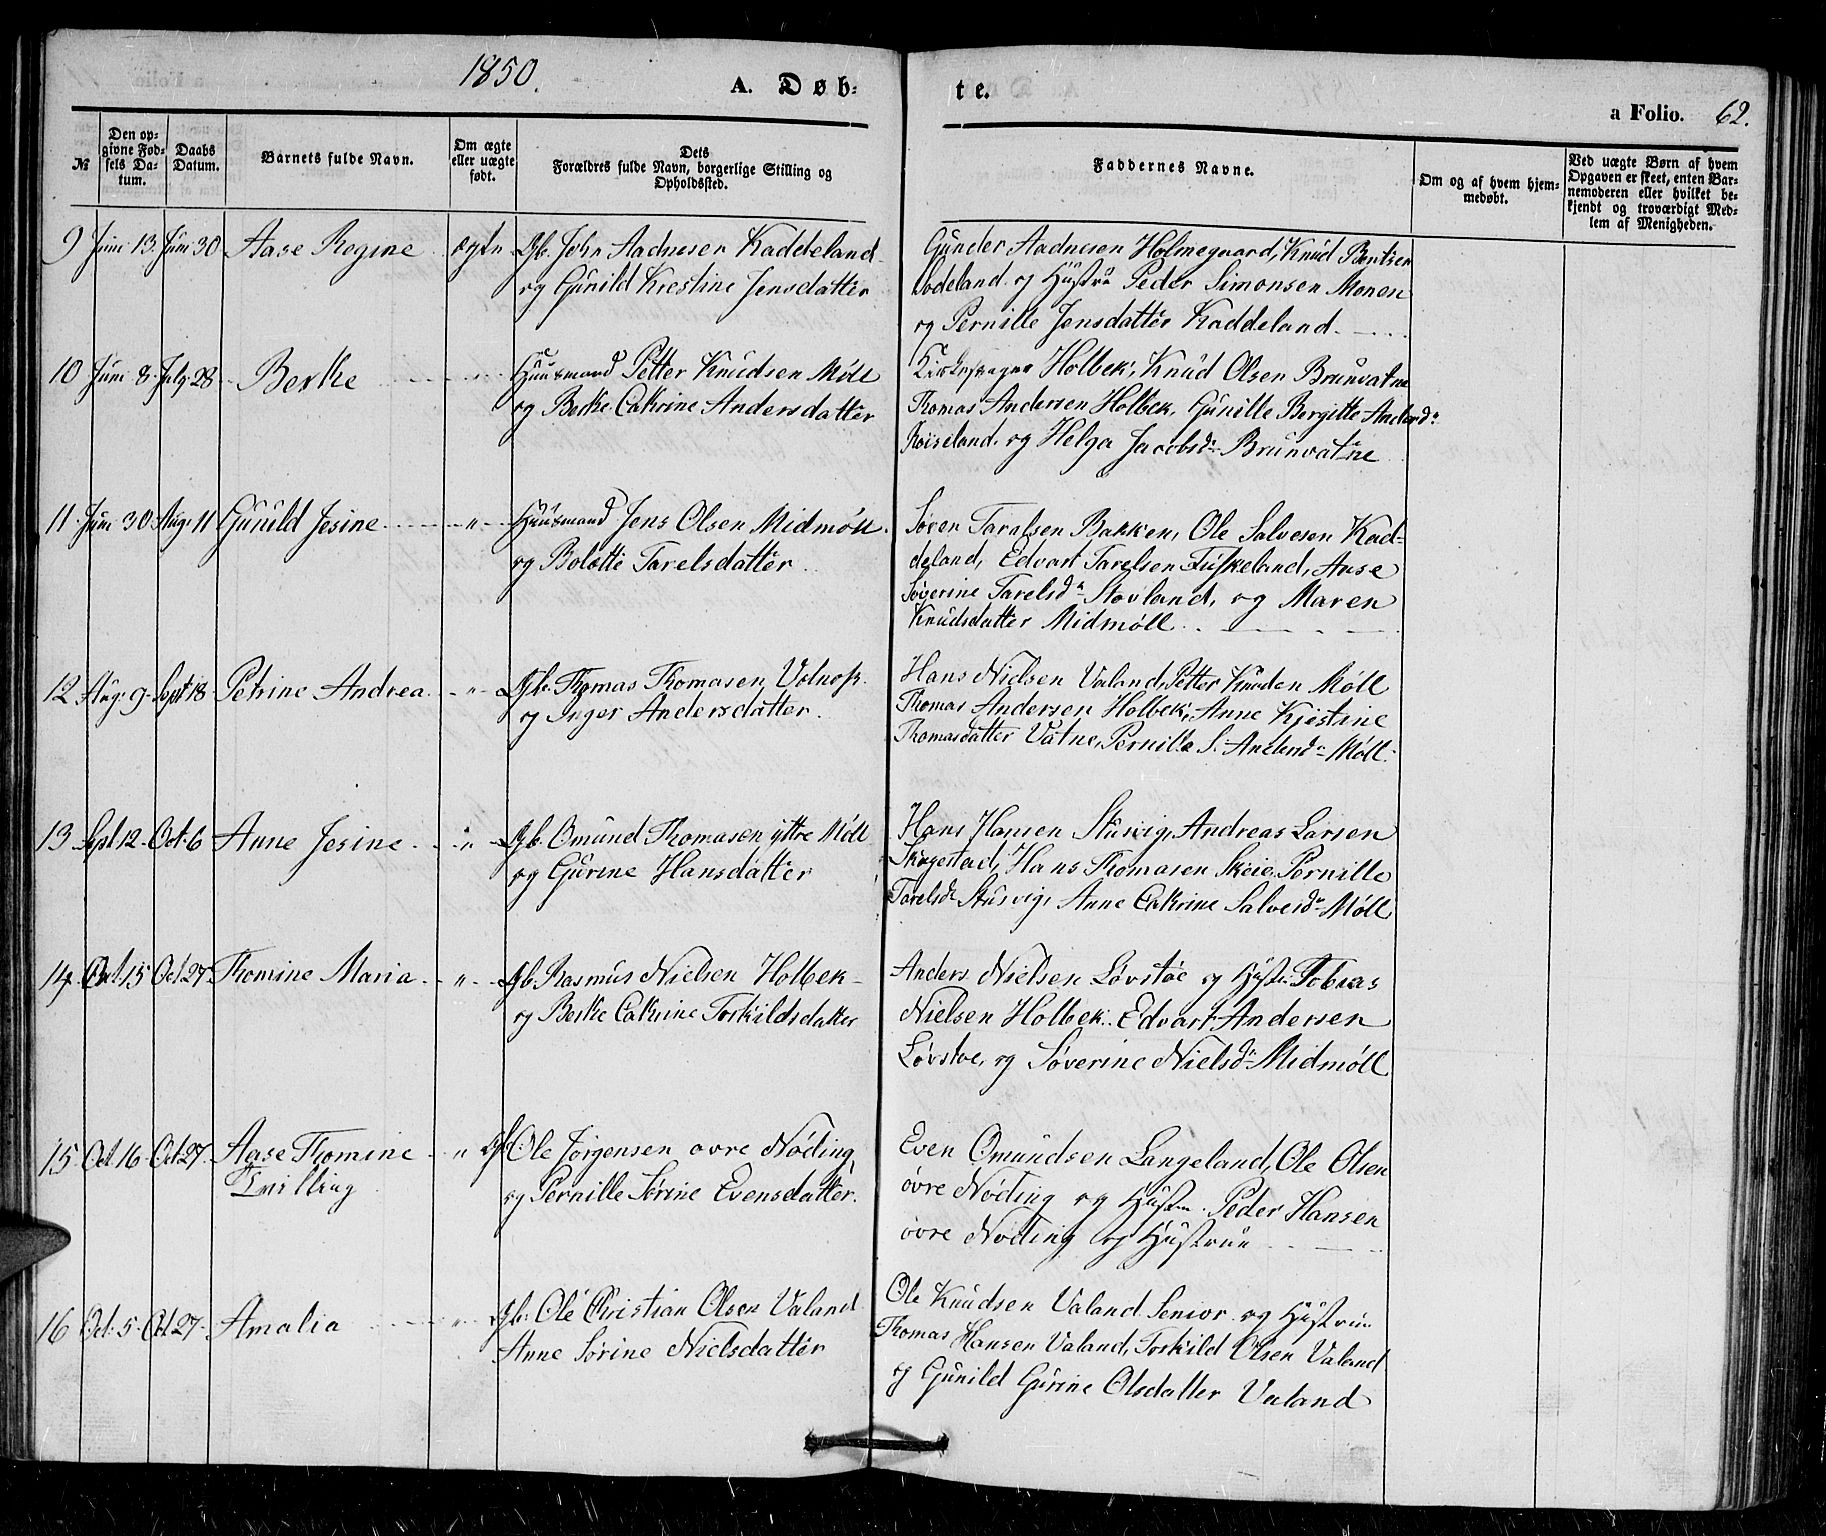 1850.
A. Døb-
te.
a Folio. 62.
№
Den op-
givne Fød-
sels Da-
tum.
Daabs
Datum.
Barnets fulde Navn.
Om ægte
eller uægte
født.
Dets
Forældres fulde Navn, borgerlige Stilling og
Opholdssted.
Faddernes Navne.
Om og af hvem hjem-
medøbt.
Ved uægte Børn af hvem
Opgaven er skeet, enten Bar-
nemoderen eller hvilket be-
kjendt og troværdigt Med-
lem af Menigheden.
9 Juni 13. Juni 30 Aase Regine ægte Gb. John Aadnesen Kaddeland
og Gunild Krestine Jensdatter
Gunder Aadnesen Holmegaard, Knud Bentsen
Sodeland og Hustru Peder Simonsen Monen
og Pernille Jensdatter Kaddeland.
10 Juni 8. July 28 Berthe " Huusmand Petter Knudsen Møll
og Berthe Cathrine Andersdatter
Holbek, Knud Olsen Brunvatne
Thomas Andersen Holbek, Gunille Bergitte Andersd:
Røiseland, og Helga Jacobsd: Brunvatne
11. Juni 30. Aug. 11 Gunild Jesine " Huusmand Jens Olsen Midmøll.
og Bolette Tarelsdatter
Søren Taralsen Bakken, Ole Salvesen Kad-
deland, Edvart Tarelsen Fuskeland, Aase
Søverine Tarelsd: Stovland, og Maren
Knudsdatter Midmøll.
12 Aug. 9. Sept 18. Petrine Andrea " Gb. Thomas Thomasen
og Inger Andersdatter.
Hans Nielsen Valand, Petter Knudsen Møll
Thomas Andersen Holbek, Anne Kjestine
Thomasdatter Vatne, Pernille S. Andersd: Møll.
13 Sept 12. Oct. 6 Anne Jesine " Gb. Omund Thomasen ytre Møll
og Gurine Hansdatter
Hans Hansen Stusvig, Andreas Larsen
Skagestad, Hans Thomasen Skeie Pernille
Tarelsd: Stusvig, Anne Cathrine Salvesd: Møll
14. Oct. 15 Oct. 27. Thomine Maria " Gb. Rasmus Nielsen Holbek
og Berthe Cathrine Torkildsdatter
Anders Nielsen Løvstøe og Hustr: Tobias
Nielsen Holbek. Edvart Andersen
Løvstoe, og Søverine Nielsd: Midmøll
15 Oct. 16 Oct 27. Aase Thomine " Gb. Ole Jørgensen øvre Nøding
Tvilling
og Pernille Sørine Evensdatter.
Even Omundsen Langeland, Ole Olsen
øvre Nøding og Hustru. Peder Hansen
øvre Nøding og Hustrue
16 Oct. 5. Oct 27. Amalia " Gb: Ole Christian Olsen Valand
Anne Sørine Nielsdatter
Ole Knudsen Valand Senior og Hustrue
Thomas Hansen Valand, Torkild Olsen Valand
og Gunild Gurine Olsdatter Valand